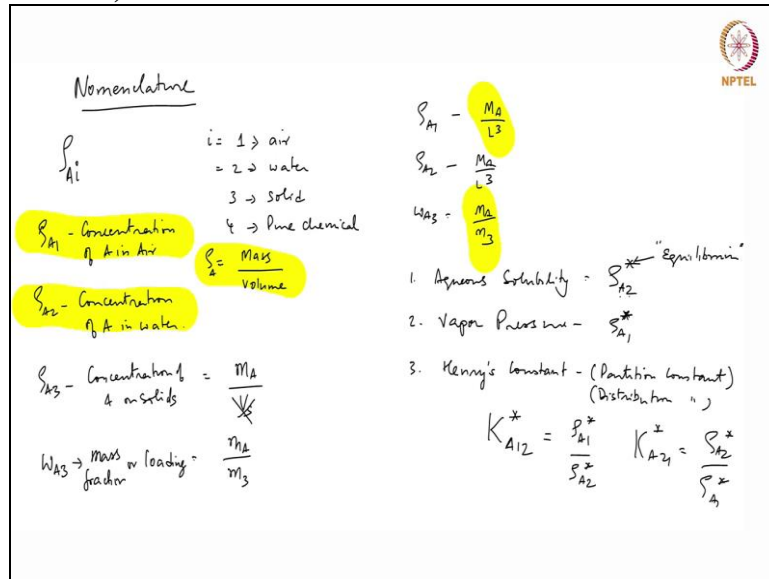 Nomenclature
ρAi
i = 1 → air
= 2 → water
3 → solid
4 → Pure chemical
ρA1 - Concentration
of A in Air
ρA = Mass
volume
ρA2 - Concentration
of A in water.
ρA3 - Concentration of = mA
A on solids
WA3 → mass or loading = mA
fraction m3
NPTEL
ρA1 - MA
L3
ρA2 - MA
L3
WA3 = MA
m3
1. Aqueous Solubility = ρA2* ← "Equilibrium"
2. Vapor Pressure - ρA1*
3. Henry's Constant - (Partition Constant)
(Distribution ")
K*A12 = ρA1* K*A21 = ρA2*
ρA2* ρA1*